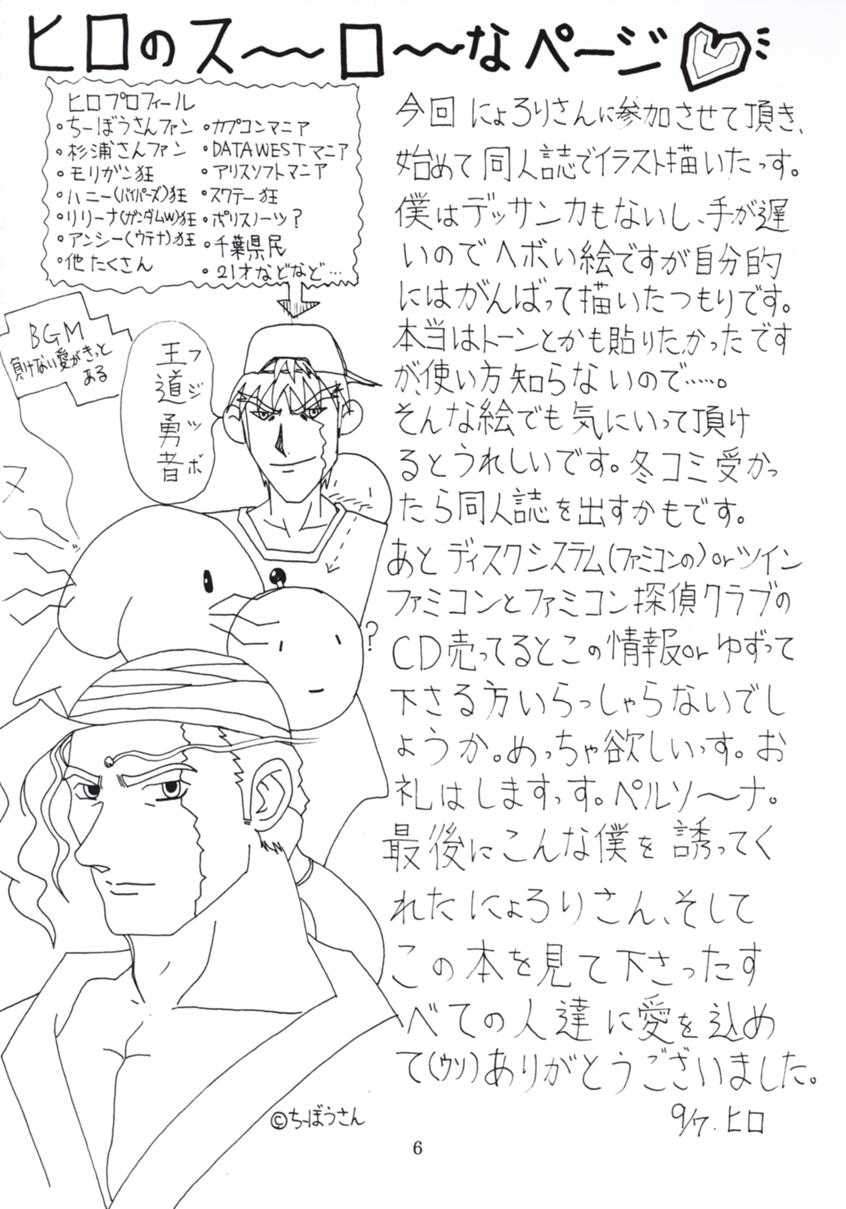 ヒロのス～～ロ～～なページ
ヒロプロフィール
・ちーぼうさんファン
・杉浦さんファン
・モリガン狂
・ハニー(バイパーズ)狂
・リリーナ(ガンダムW)狂
・アンシー(ウテナ)狂
・他たくさん
・カプコンマニア
・DATA WESTマニア
・アリスソフトマニア
・スクテー狂
・ポリスノーツ?
・千葉県民
・21才などなど…
BGM
負けない愛がきっと
ある
王道勇者
フジツボ
ヌ
?
今回 にょろりさんに参加させて頂き、
始めて同人誌でイラスト描いたっす。
僕はデッサン力もないし、手が遅
いのでヘボい絵ですが自分的
にはがんばって描いたつもりです。
本当はトーンとかも貼りたかったです
が、使い方知らないので……。
そんな絵でも気にいって頂け
るとうれしいです。冬コミ受かっ
たら同人誌を出すかもです。
あと ディスクシステム(ファミコンの)orツイン
ファミコンとファミコン探偵クラブの
CD売ってるとこの情報or ゆずって
下さる方いらっしゃらないでし
ょうか。めっちゃ欲しいっす。お
礼はしますっす。ペルソ～ナ。
最後にこんな僕を誘ってく
れたにょろりさん、そして
この本を見て下さったす
べての人達に愛を込め
て(ウソ)ありがとうございました。
9/7. ヒロ
©ちーぼうさん
6